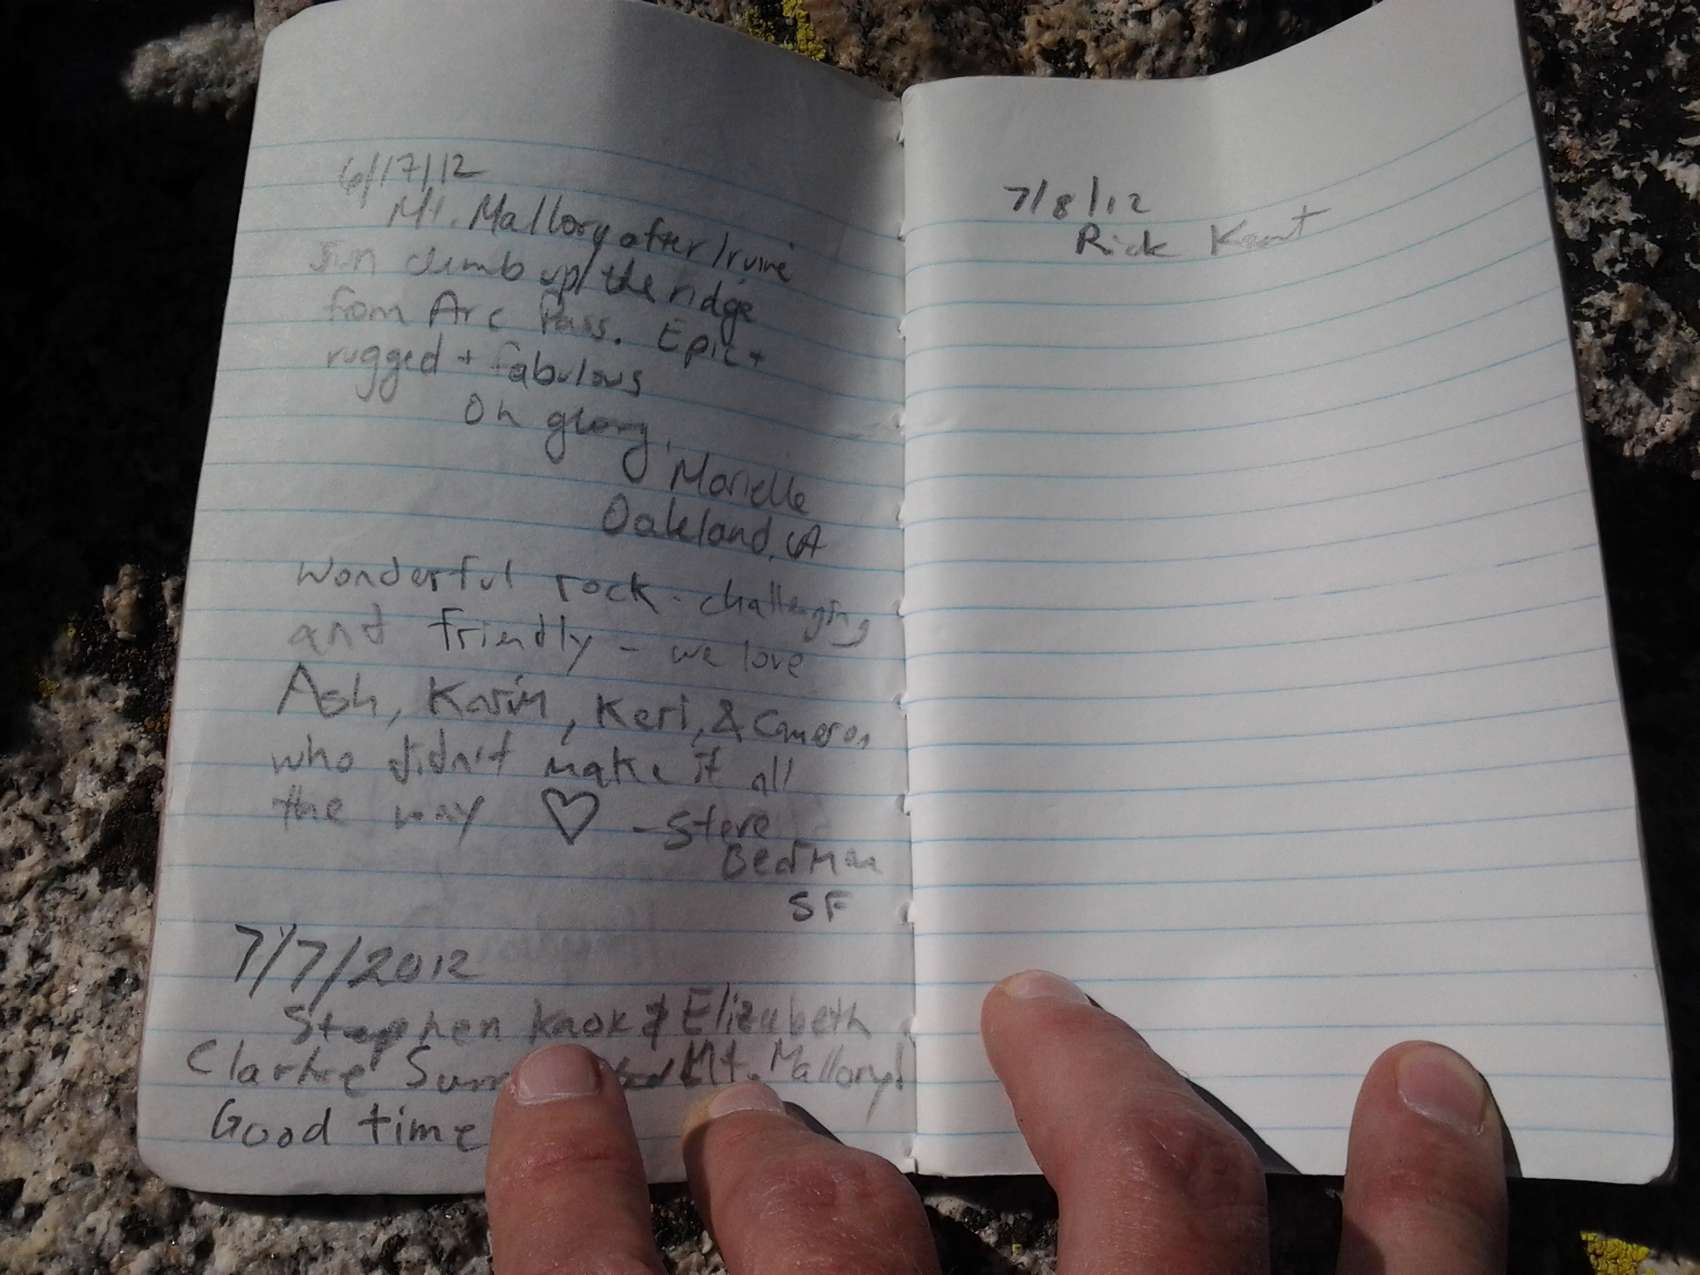 6/17/12
Mt. Mallory after Irvine
climb up the ridge
from Arc Pass. Epic +
rugged + fabulous
Oh glory,
Marielle
Oakland, CA
Wonderful rock - challenging
and friendly - we love
Ash, Karin, Keri, & Cameron
who didn't make it all
the way ♡ - Steve
SF
7/7/2012
Stephen & Elizabeth
Clarke Mt. Mallory!
Good time
7/8/12
Rick Kent